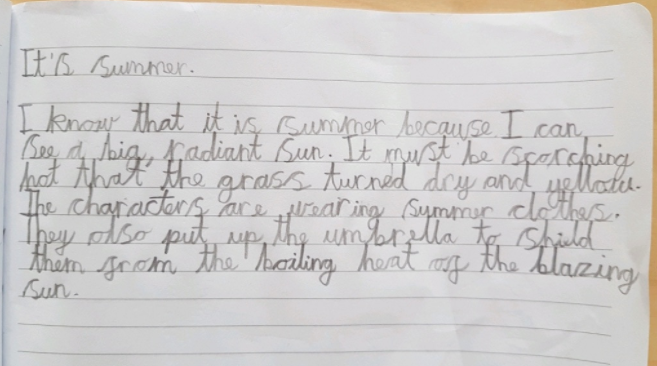 It's summer.
I know that it is summer because I can
see a big, radiant sun. It must be scorching
hot that the grass turned dry and yellow.
The characters are wearing summer clothes.
They also put up the umbrella to shield
them from the boiling heat of the blazing
sun.